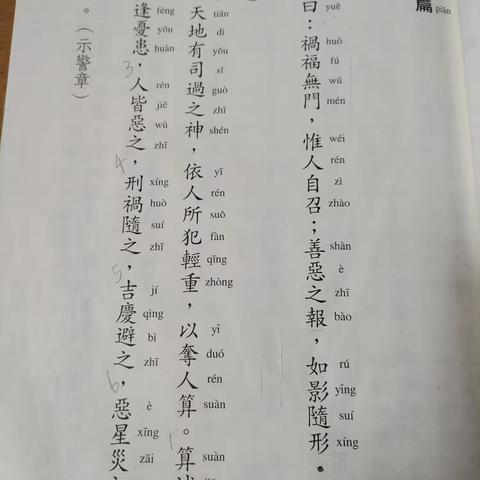 篇
piān
曰：禍福無門，惟人自召；善惡之報，如影隨形。
yuē huò fú wú mén wéi rén zì zhào shàn è zhī bào rú yǐng suí xíng
天地有司過之神，依人所犯輕重，以奪人算。1算
tiān dì yǒu sī guò zhī shén yī rén suǒ fàn qīng zhòng yǐ duó rén suàn suàn
逢憂患，3人皆惡之，4刑禍隨之，5吉慶避之，6惡星災
féng yōu huàn rén jiē wù zhī xíng huò suí zhī jí qìng bì zhī è xīng zāi
。（示警章）